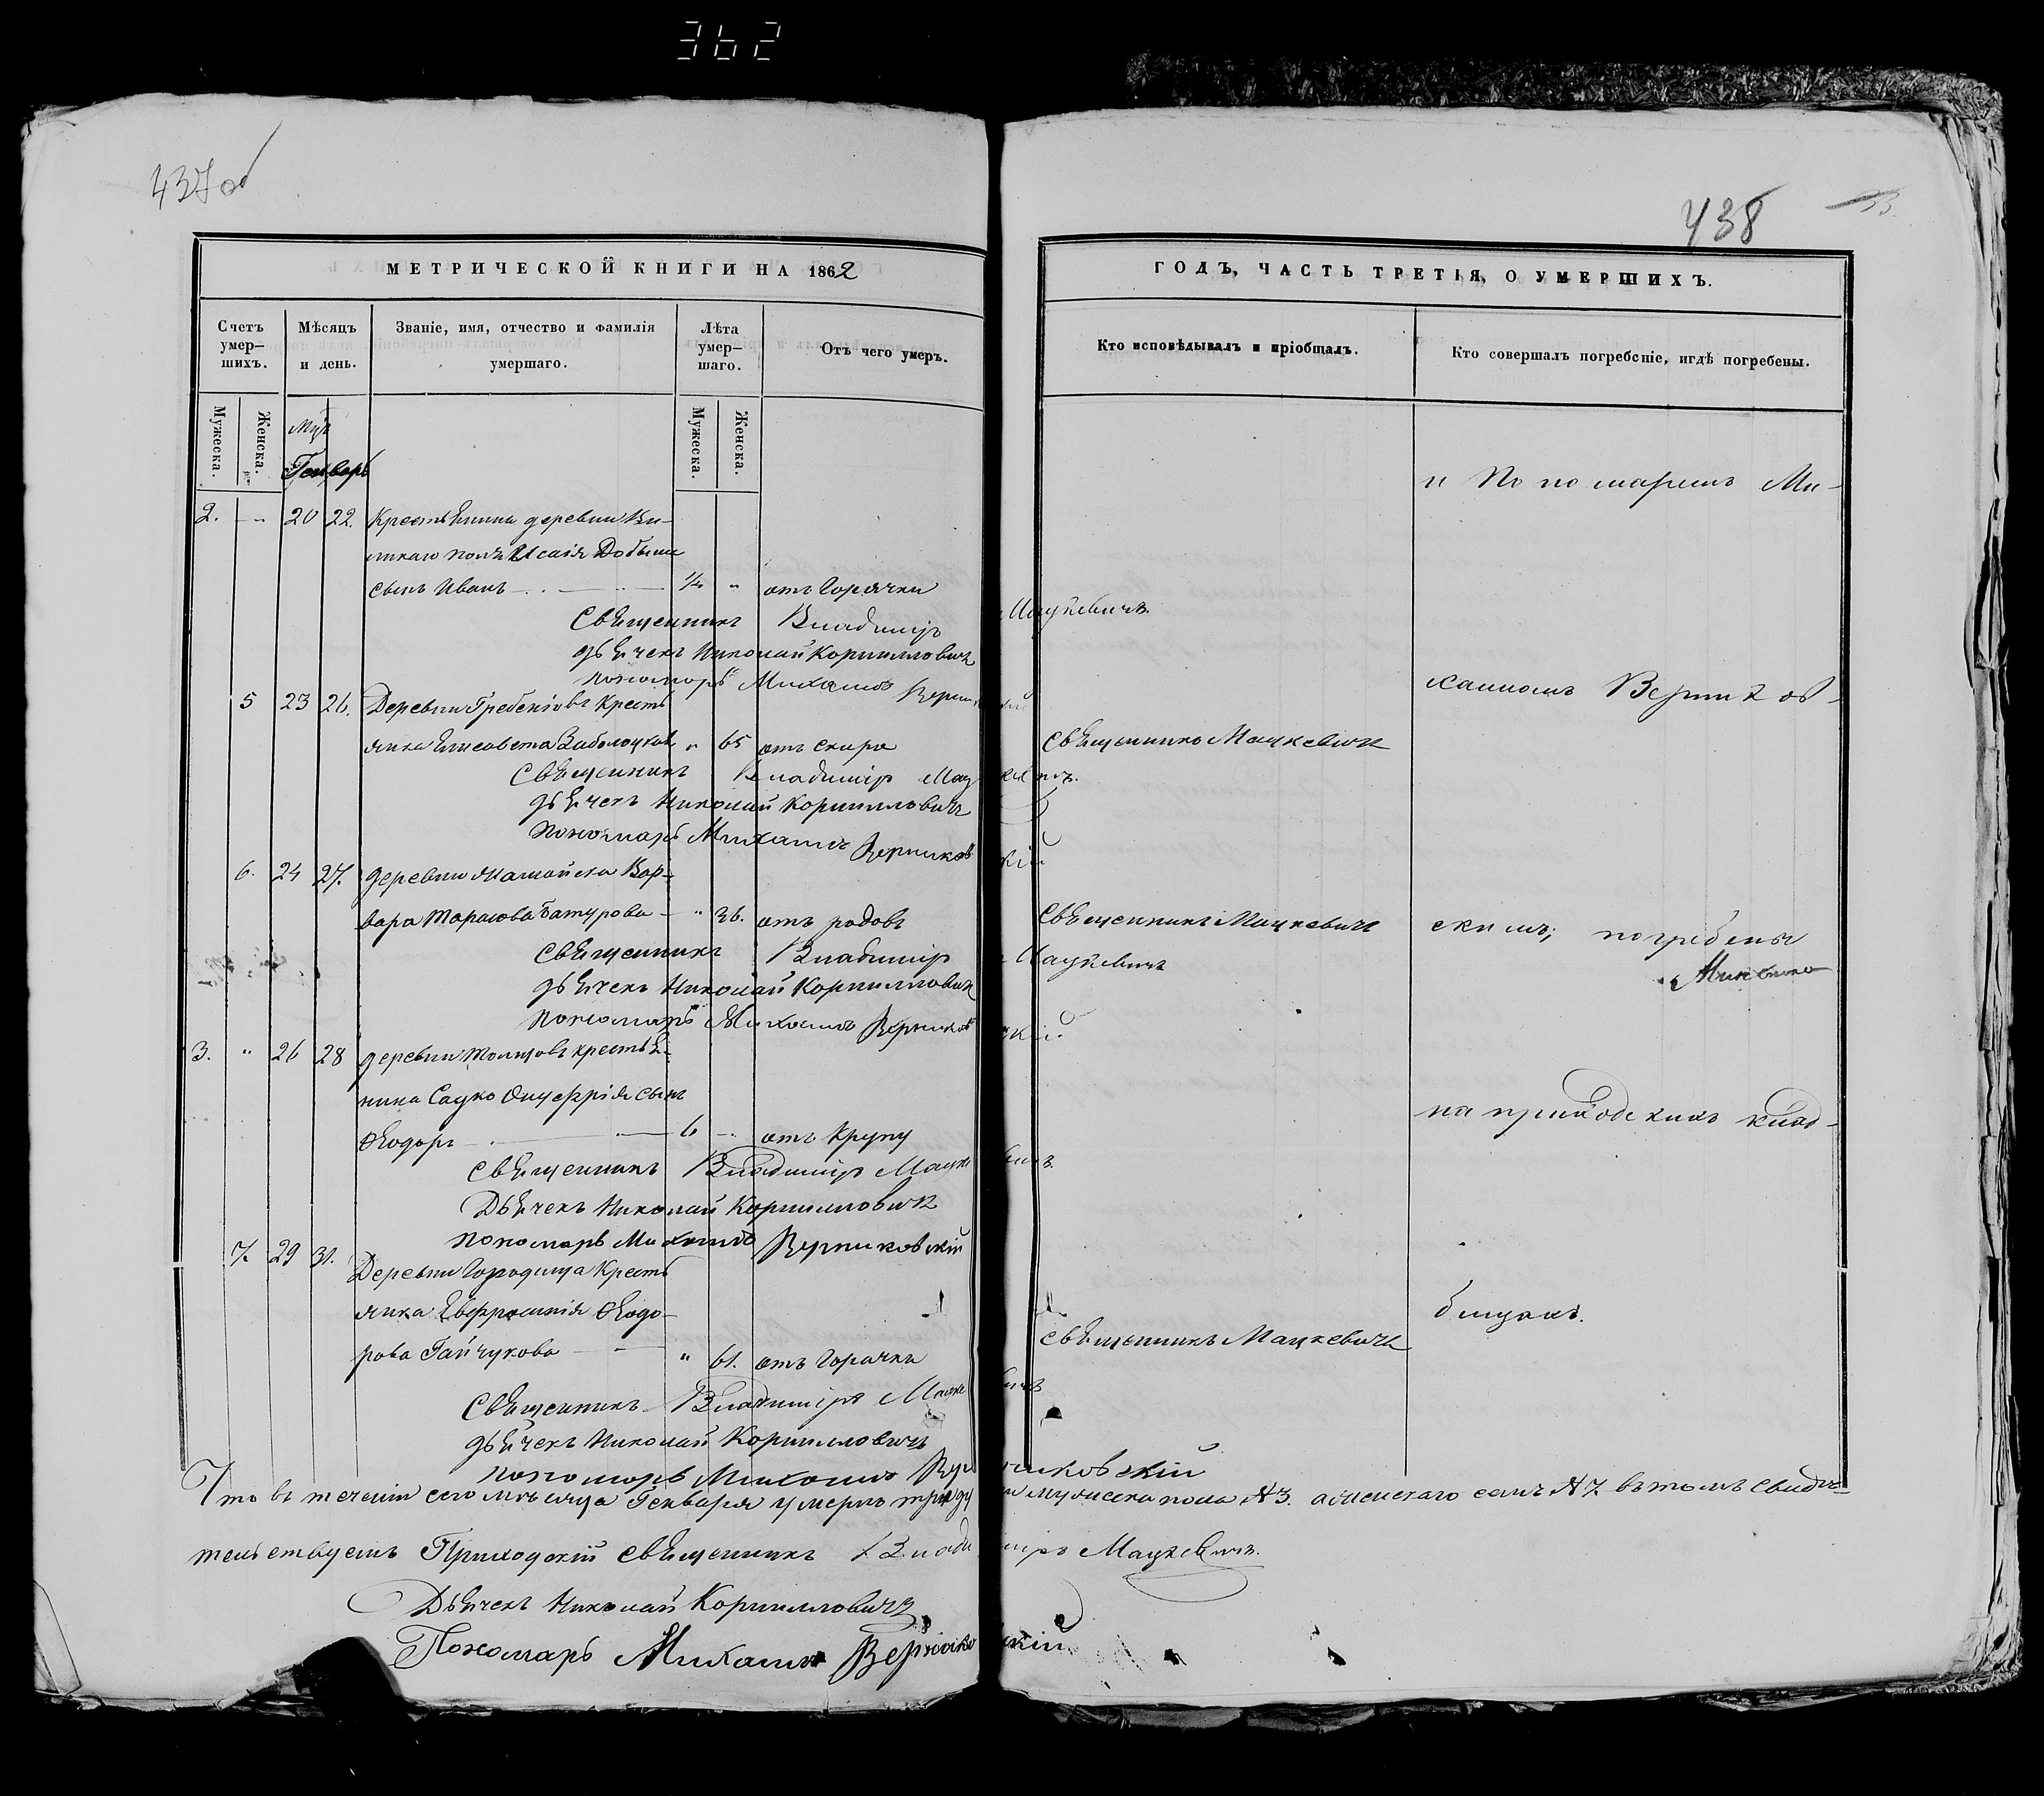 362
437 об
438
МЕТРИЧЕСКОЙ КНИГИ НА 1862
ГОДЪ, ЧАСТЬ ТРЕТІЯ, О УМЕРШИХЪ.
Счетъ умер–шихъ.
Мѣсяцъ и день.
Званіе, имя, отчество и фамилія умершаго.
Лѣта умер–шаго.
Отъ чего умеръ.
Кто исповѣдывалъ и пріобщалъ.
Кто совершалъ погребеніе, игдѣ погребены.
Мужеска.
Женска.
Мужеска.
Женска.
Генварь
и Пономаремъ Ми-
2. " 20 22. Крестьянина деревни
Исаія
сынъ Иванъ 1/4 " отъ Горячки
Священникъ Владиміръ Мацкевичъ
дьячекъ Николай Корнилловичъ
пономарь Михаилъ Верниковскій
хаиломъ Верников-
5 23 26. Деревни Гребеніовъ Кресть
янка Елисавета Заболоцкая " 65 отъ
Священникъ Мацкевичъ
Священникъ Владиміръ Мацкевичъ.
дьячекъ Николай Корнилловичъ
Пономарь Михаилъ Верниковскій
6. 24 27. деревни Вар-
вара Тарасова Батурова " 36. отъ родовъ
Священникъ Мацкевичъ
скимъ; погребены
Священникъ Владиміръ Мацкевичъ
дьячекъ Николай Корнилловичъ
пономарь Михаилъ Верниковскій.
3. " 26 28 деревни крестья-
нина Сацко Онуфрія сынъ
Ѳеодоръ 6 " отъ Крупу
на приходскихъ клад-
Священникъ Владиміръ Мацкевичъ.
Дьячекъ Николай Корнилловичъ
пономарь Михаилъ Верниковскій
7. 29 31. Деревни Городища Кресть
янка Евфросинія Ѳеодо-
рова Гайчукова " 61. отъ Горячки
Священникъ Мацкевичъ
бищахъ.
Священникъ Владиміръ Мацкевичъ
дьячекъ Николай Корнилловичъ
пономарь Михаилъ Верниковскій
Что въ теченіи сего мѣсяца Генваря умерло мужеска пола №3. а женскаго семь №7 въ томъ свидѣ-
тельствуемъ Приходскій священникъ Владиміръ Мацкевичъ.
Дьячекъ Николай Корнилловичъ
Пономарь Михаилъ Верниковскій